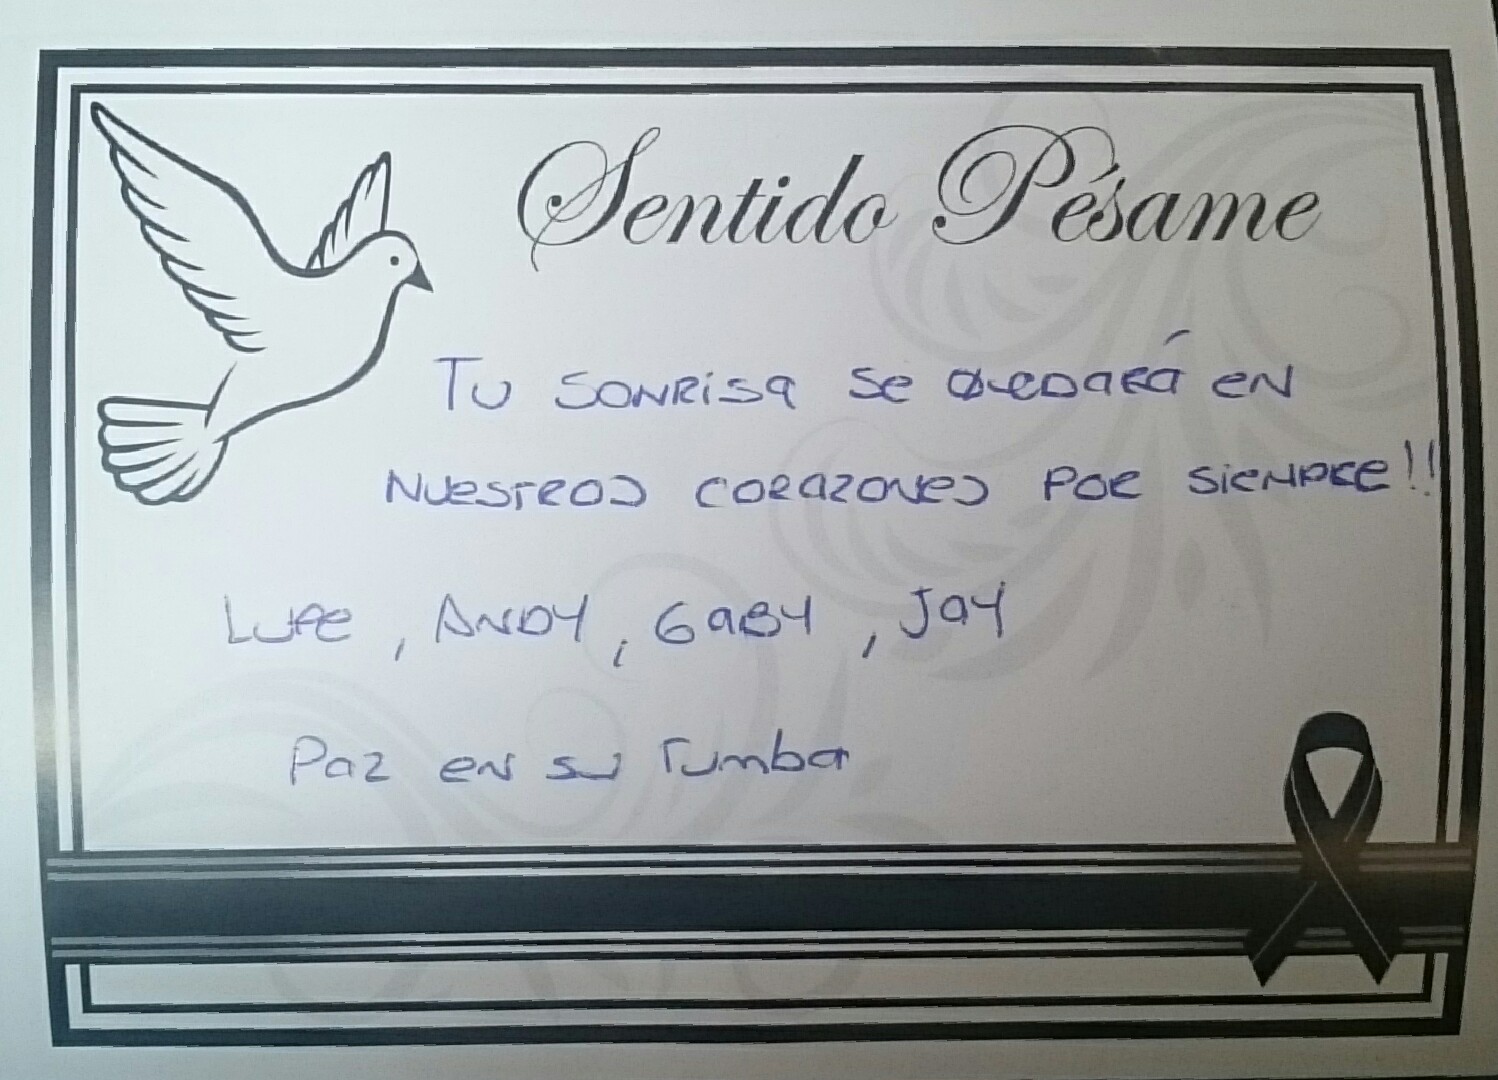 Sentido Pésame
Tu sonrisa se quedará en
nuestros corazones por siempre!!
Lupe, Andy, Gaby, Jay
Paz en su tumba